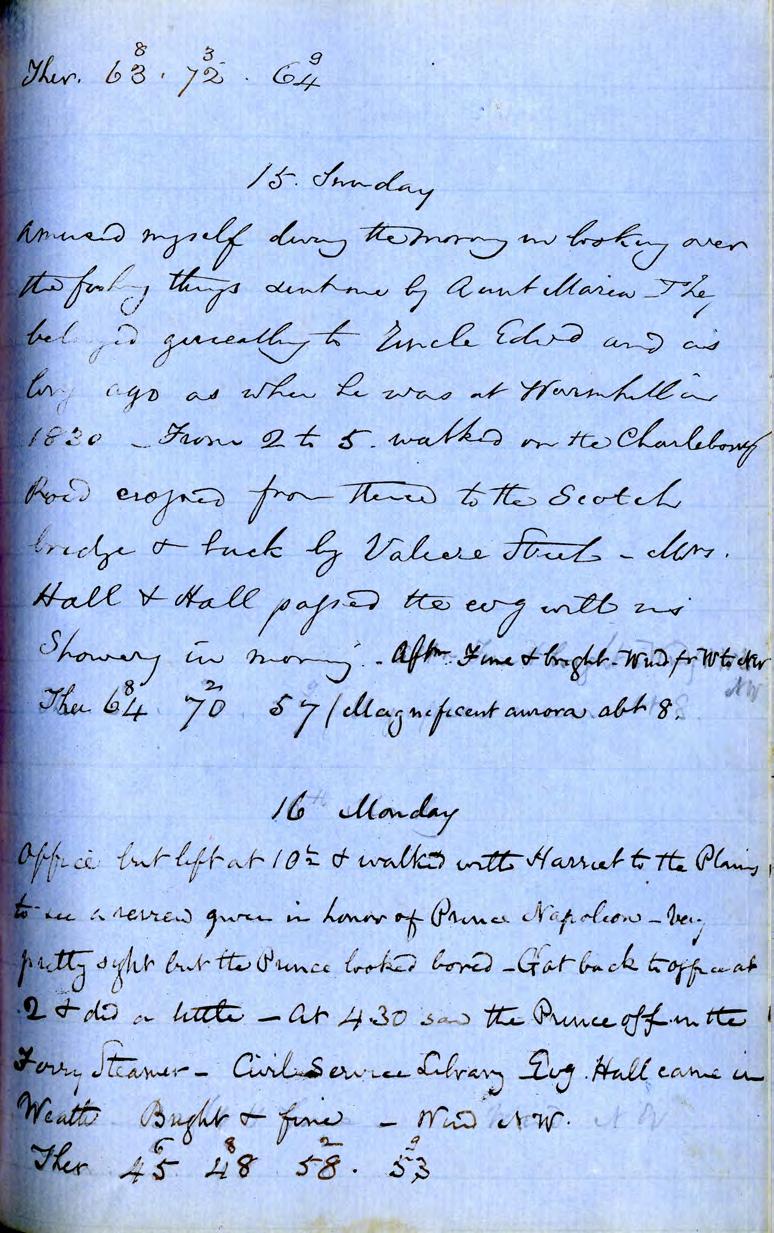 Ther. 63 8 . 72 3 . 64 9
15. Sunday
Amused myself during the morng in looking over
the fishing things sent me by Aunt Maria – They
belonged generally to Uncle Edwd and as
long ago as when he was at Warnhill in
1830 – From 2 to 5. walked on the Charlebourg
Road crossed from thence to the Scotch
bridge & back by Valiere Street – Mrs.
Hall & Hall passed the evg with us
Showery in morning. – Aftn. Fine & bright – Wind fr W to NW
Ther 64 8 70 2 57 / Magnificent aurora abt 8.
16 Monday
Office but left at 10½ & walked with Harriet to the Plains
to see a review given in honor of Prince Napoleon – Very
pretty sight but the Prince looked bored – Got back to office at
2 & did a little – At 4.30 saw the Prince off in the
Ferry Steamer – Civil Service Library Evg. Hall came in
Weath Bright & fine – Wind NW.
Ther 45 6 48 8 58 2 . 53 9